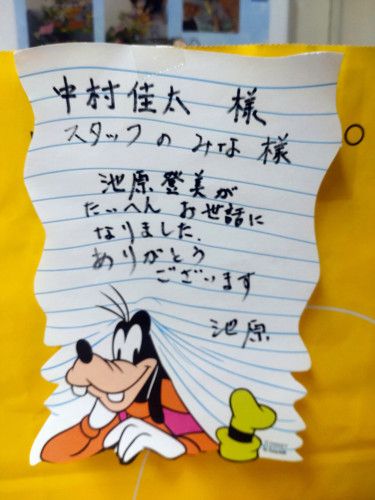 中村佳太 様
スタッフの みな 様
池原登美が
たいへん お世話に
なりました.
ありがとう
ございます
池原